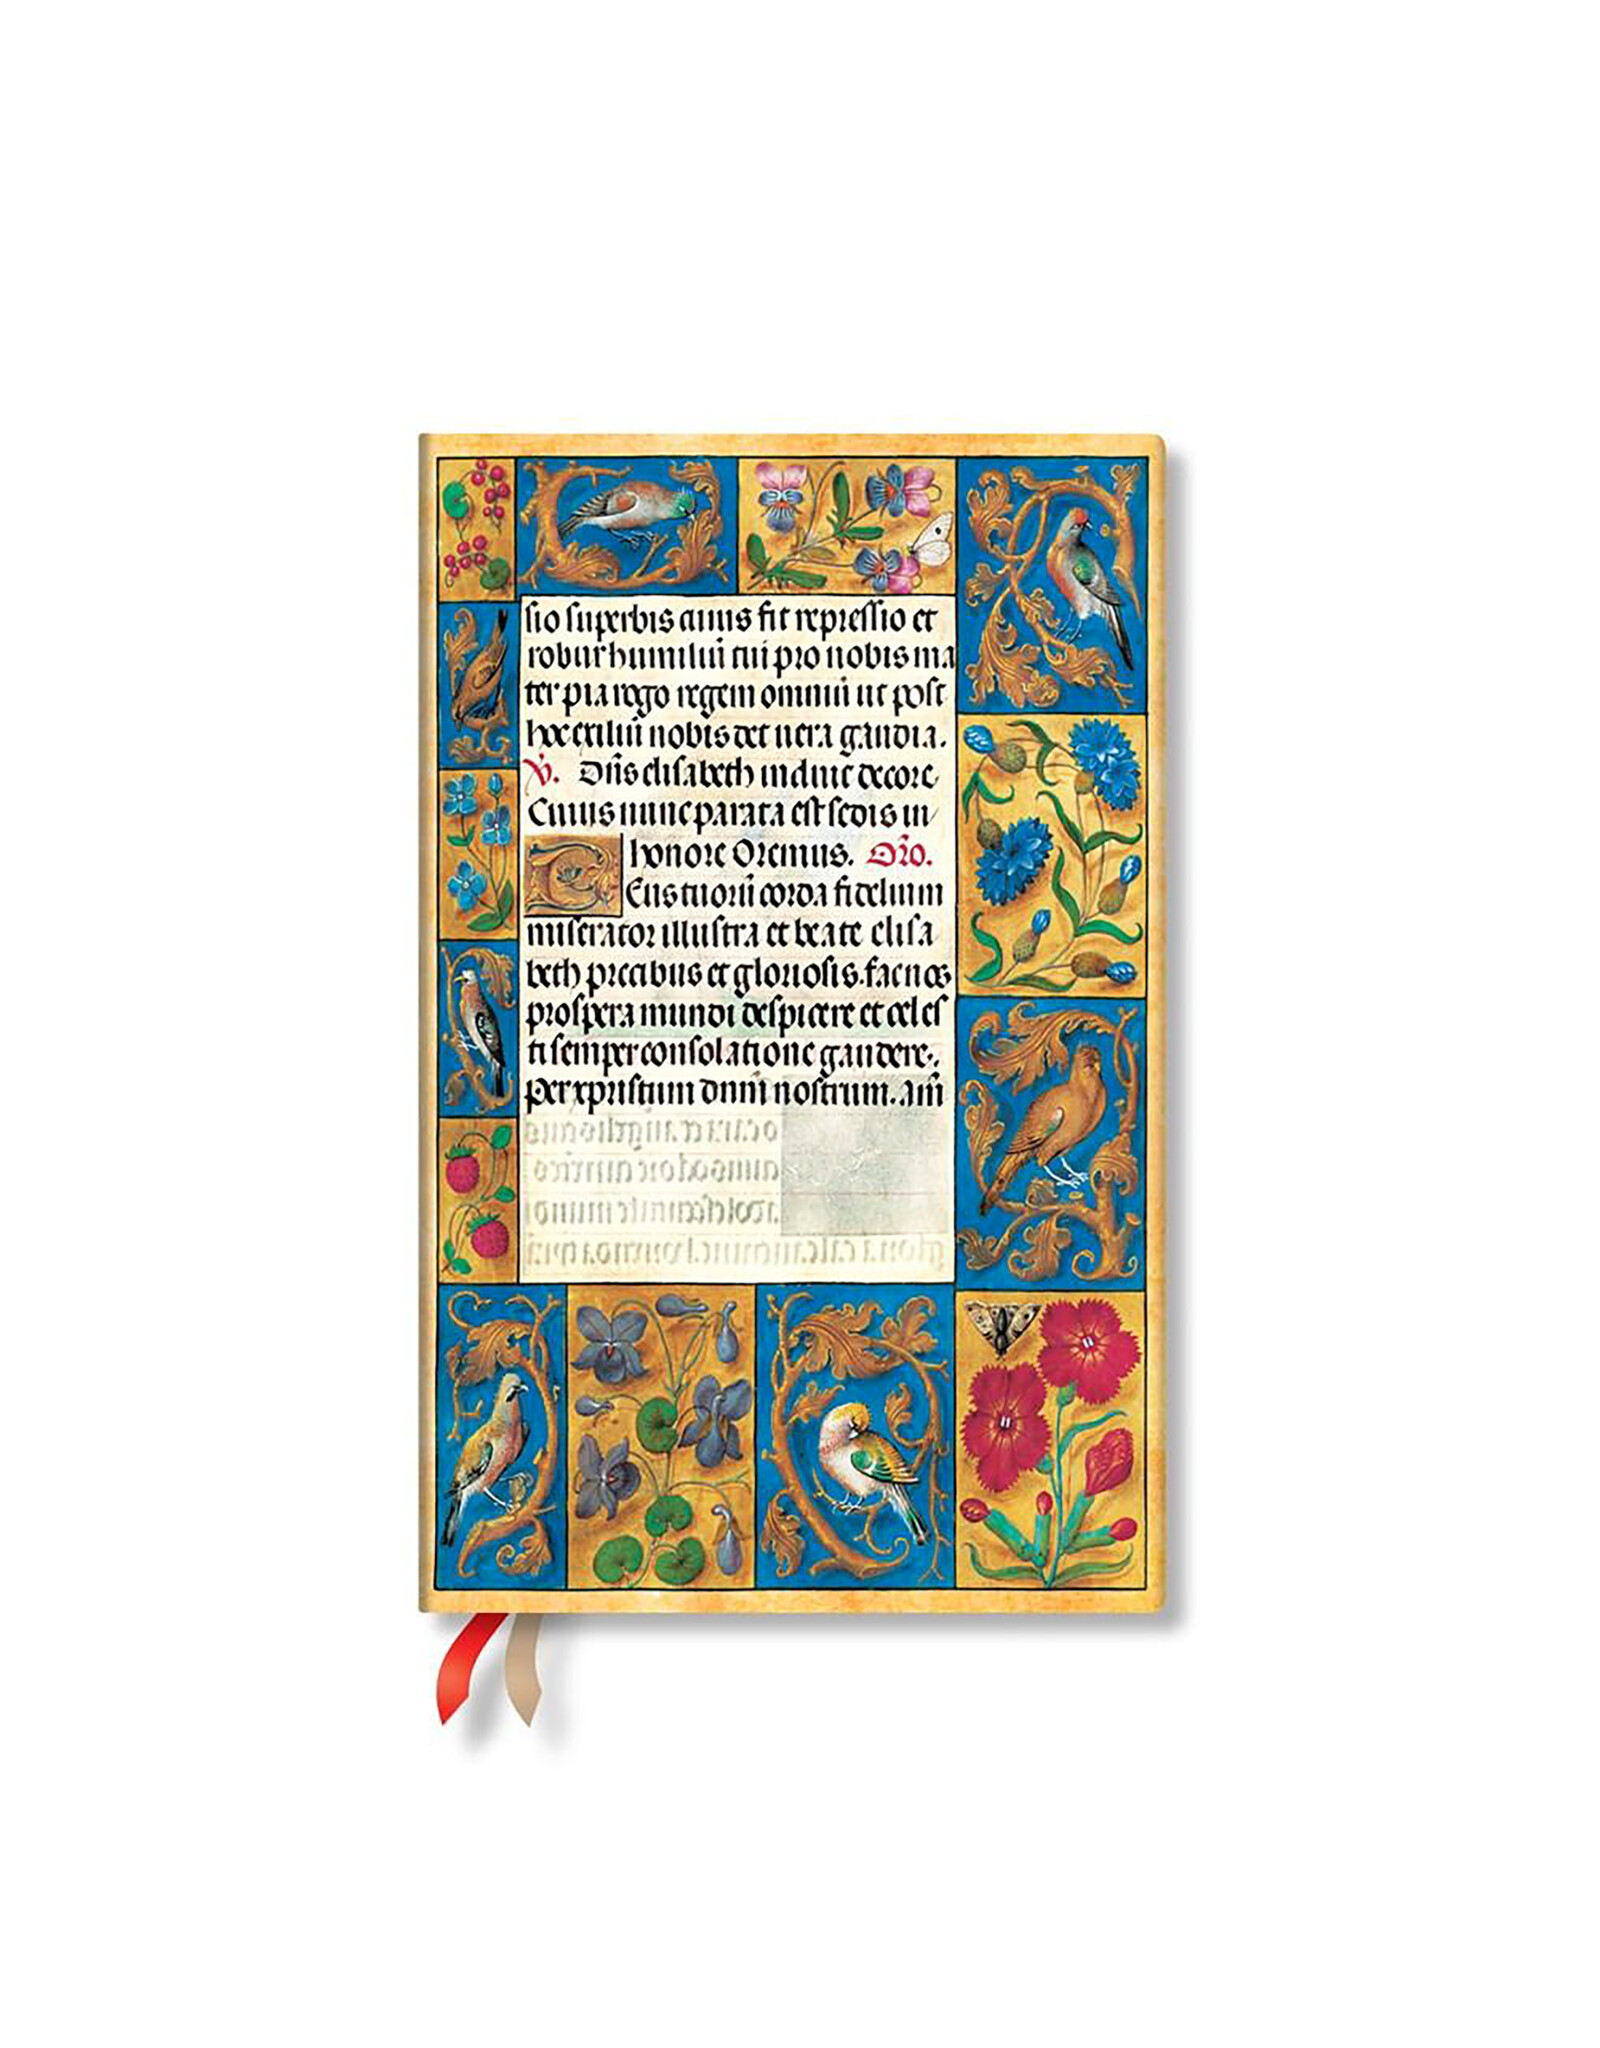 sio superbis cuius fit repressio et
robur humiliū tui pro nobis ma
ter pia rogo regem omniū ut post
hoc exiliū nobis det uera gaudia.
V. Dn̄s elisabeth induit decore
Cuius nunc parata est sedis in
honore Oremus. Or̄o.
Deus tuorū corda fidelium
miserator illustra et beate elisa
beth precibus et gloriosis. fac nos
prospera mundi despicere et celes
ti semper consolatione gaudere.
Per xpristum dnm̄ nostrum. Am̄